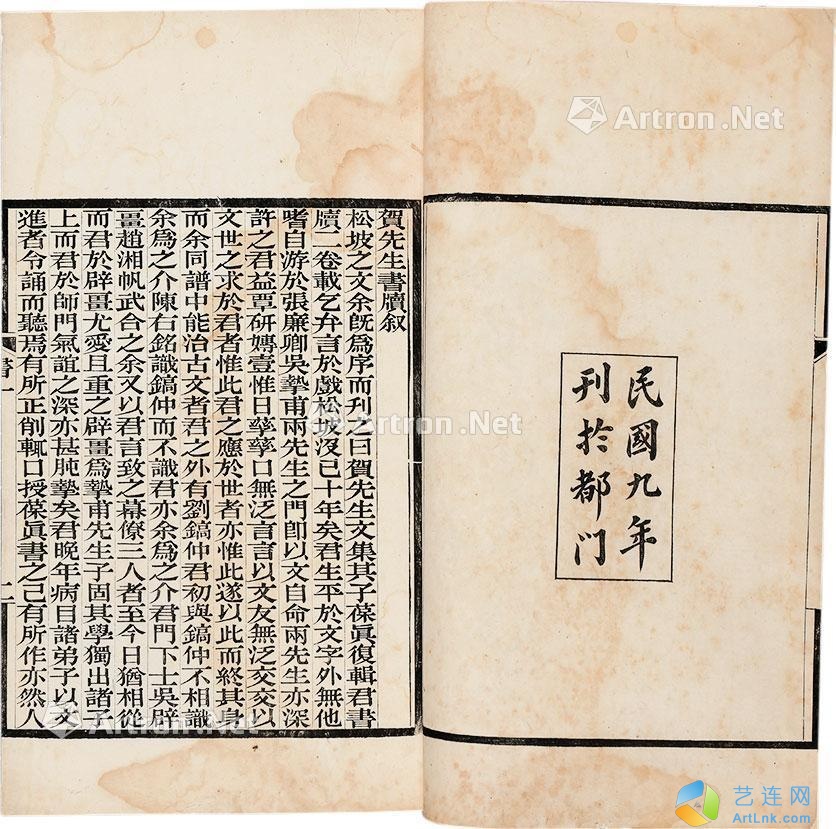 民國九年
刊於都門
賀先生書牘叙
松坡之文余既爲序而刊之曰賀先生文集其子葆眞復輯君書
牘二卷載乞弁言於戲松坡沒已十年矣君生平於文字外無他
嗜自游於張廉卿吳摯甫兩先生之門卽以文自命兩先生亦深
許之君益覃研嫥壹惟日孳孳口無泛言言以文友無泛交交以
文世之求於君者惟此君之應於世者亦惟此遂以此而終其身
而余同譜中能治古文者君之外有劉鎬仲君初與鎬仲不相識
余爲之介陳右銘識鎬仲而不識君亦余爲之介君門下士吳辟
畺趙湘帆武合之余又以君言致之幕僚三人者至今日猶相從
而君於辟畺尤愛且重之辟畺爲摯甫先生子固其學獨出諸子
上而君於師門氣誼之深亦甚肫摯矣君晚年病目諸弟子以文
進者令誦而聽焉有所正削輒口授葆眞書之己有所作亦然人
書一
二
Artron.Net
Artron.Net
Artron.Net
Artron.Net
艺连网
ArtLnk.com